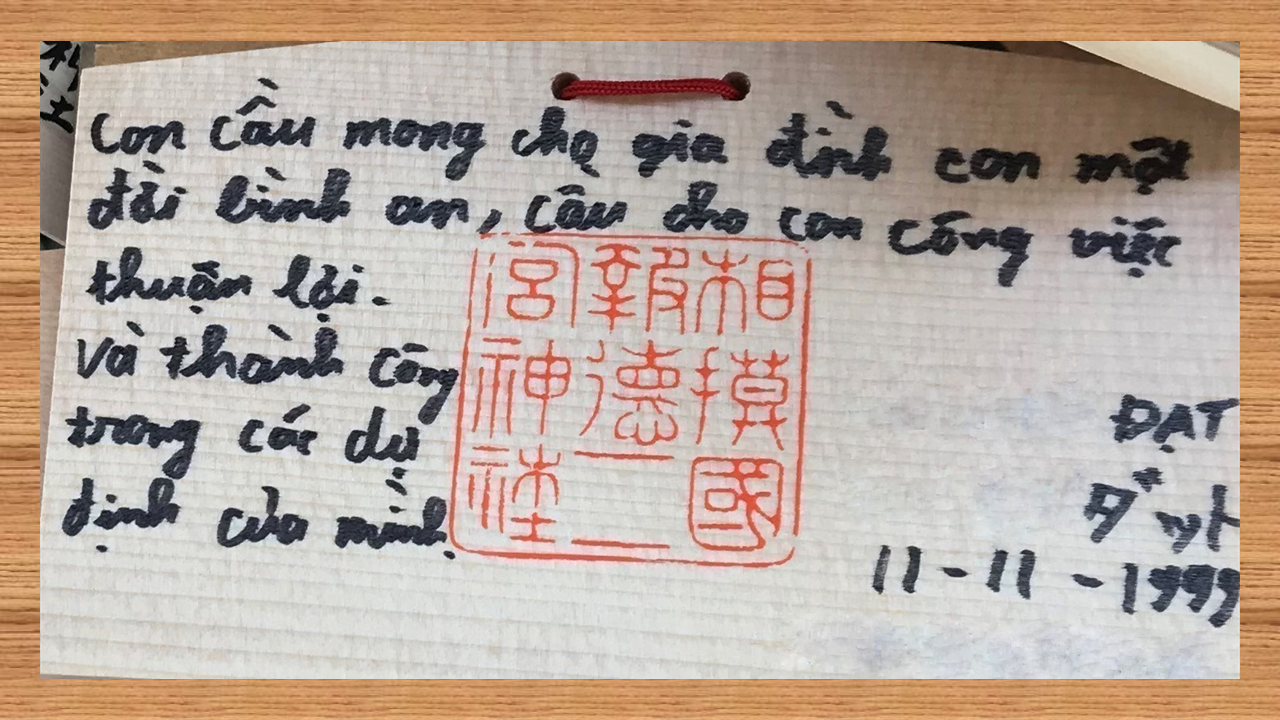 Con cầu mong cho gia đình con một
đời bình an, cầu cho con công việc
thuận lợi.
Và thành công
trong các dự
định của mình.
相模國
報德二
宮神社
ĐẠT
11-11-1999